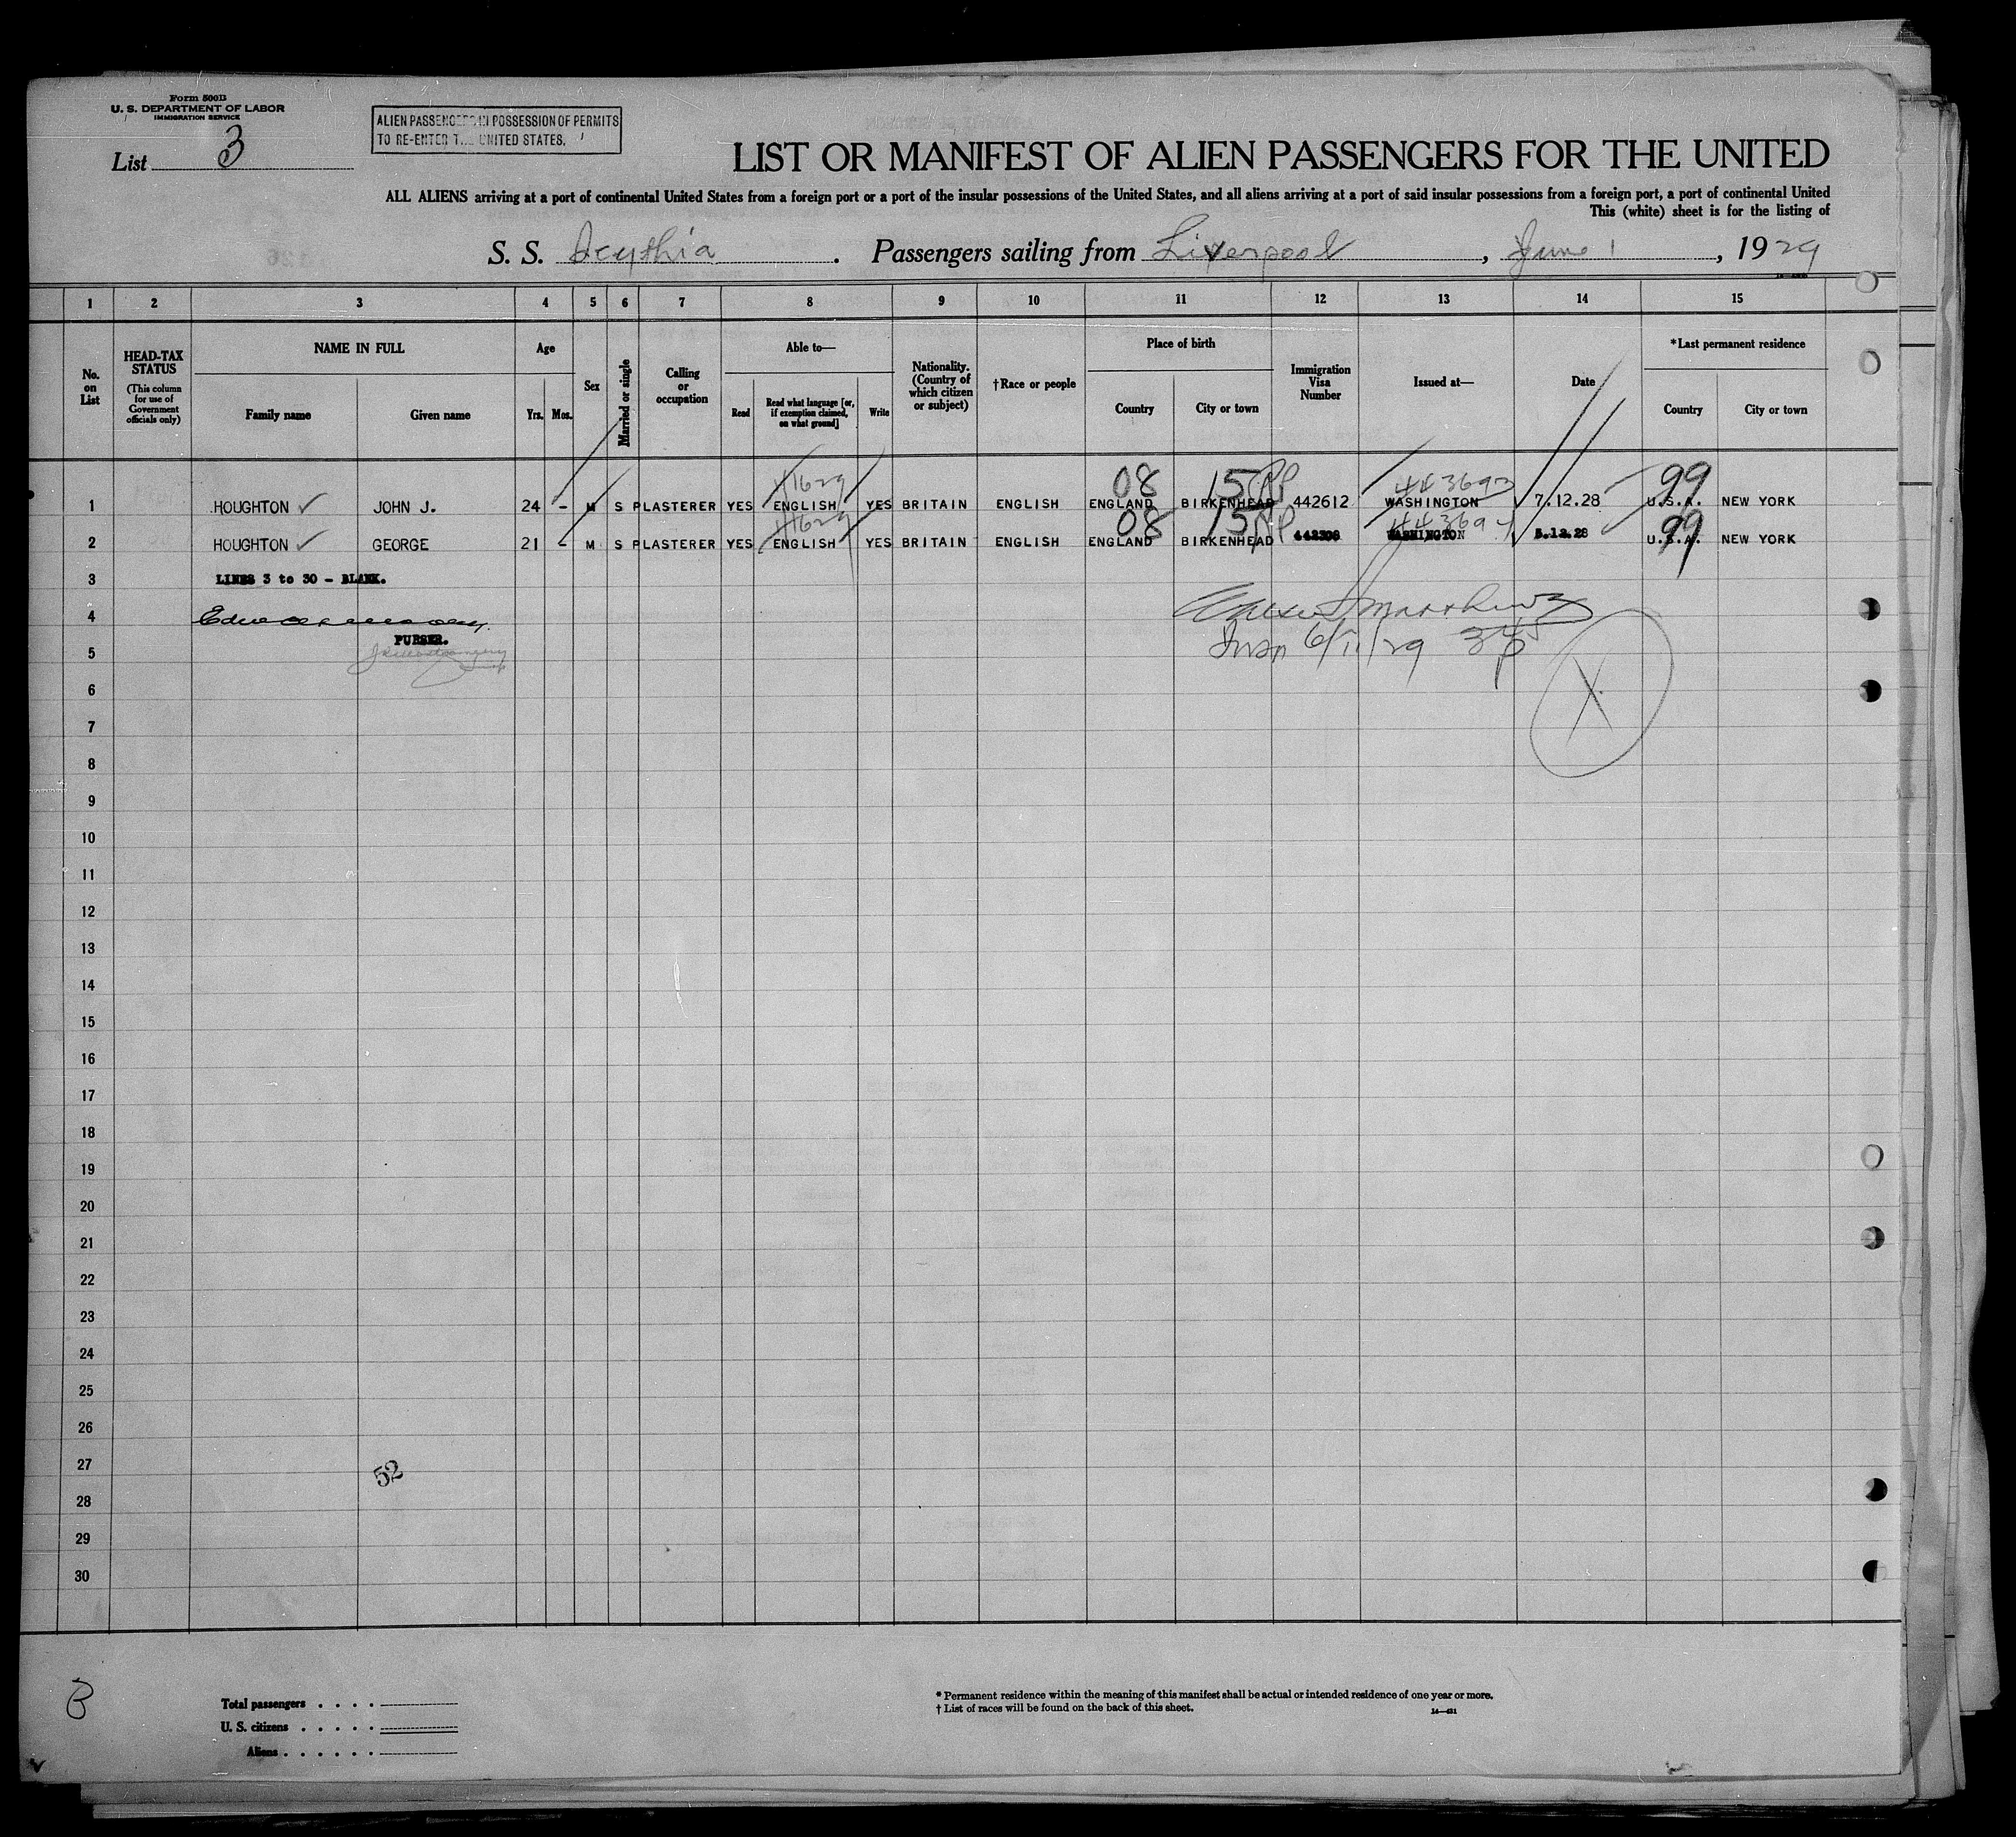 Form 500B
U. S. DEPARTMENT OF LABOR
IMMIGRATION SERVICE
List 3
ALIEN PASSENGERS IN POSSESSION OF PERMITS
TO RE-ENTER T UNITED STATES.
LIST OR MANIFEST OF ALIEN PASSENGERS FOR THE UNITED
ALL ALIENS arriving at a port of continental United States from a foreign port or a port of the insular possessions of the United States, and all aliens arriving at a port of said insular possessions from a foreign port, a port of continental United
This (white) sheet is for the listing of
S. S. Scythia. Passengers sailing from Liverpool, June 1, 1929
1 2 3 4 5 6 7 8 9 10 11 12 13 14 15
No. on List
HEAD-TAX STATUS
(This column for use of Government officials only)
NAME IN FULL
Family name Given name
Age
Yrs. Mos.
Sex
Married or single
Calling or occupation
Able to—
Read
Read what language [or, if exemption claimed, on what ground]
Write
Nationality. (Country of which citizen or subject)
†Race or people
Place of birth
Country City or town
Immigration Visa Number
Issued at—
Date
*Last permanent residence
Country City or town
08 15 443693 99
1 HOUGHTON JOHN J. 24 - M S PLASTERER YES ENGLISH YES BRITAIN ENGLISH ENGLAND BIRKENHEAD 442612 WASHINGTON 7.12.28 U.S.A. NEW YORK
08 15 99
2 HOUGHTON GEORGE 21 - M S PLASTERER YES ENGLISH YES BRITAIN ENGLISH ENGLAND BIRKENHEAD WASHINGTON U.S.A. NEW YORK
3 LINES 3 to 30 - BLANK.
4
PURSER.
5 6/11/29
6
7
8
9
10
11
12
13
14
15
16
17
18
19
20
21
22
23
24
25
26
27
52
28
29
30
B
Total passengers
U. S. citizens
Aliens
* Permanent residence within the meaning of this manifest shall be actual or intended residence of one year or more.
† List of races will be found on the back of this sheet.
14—431